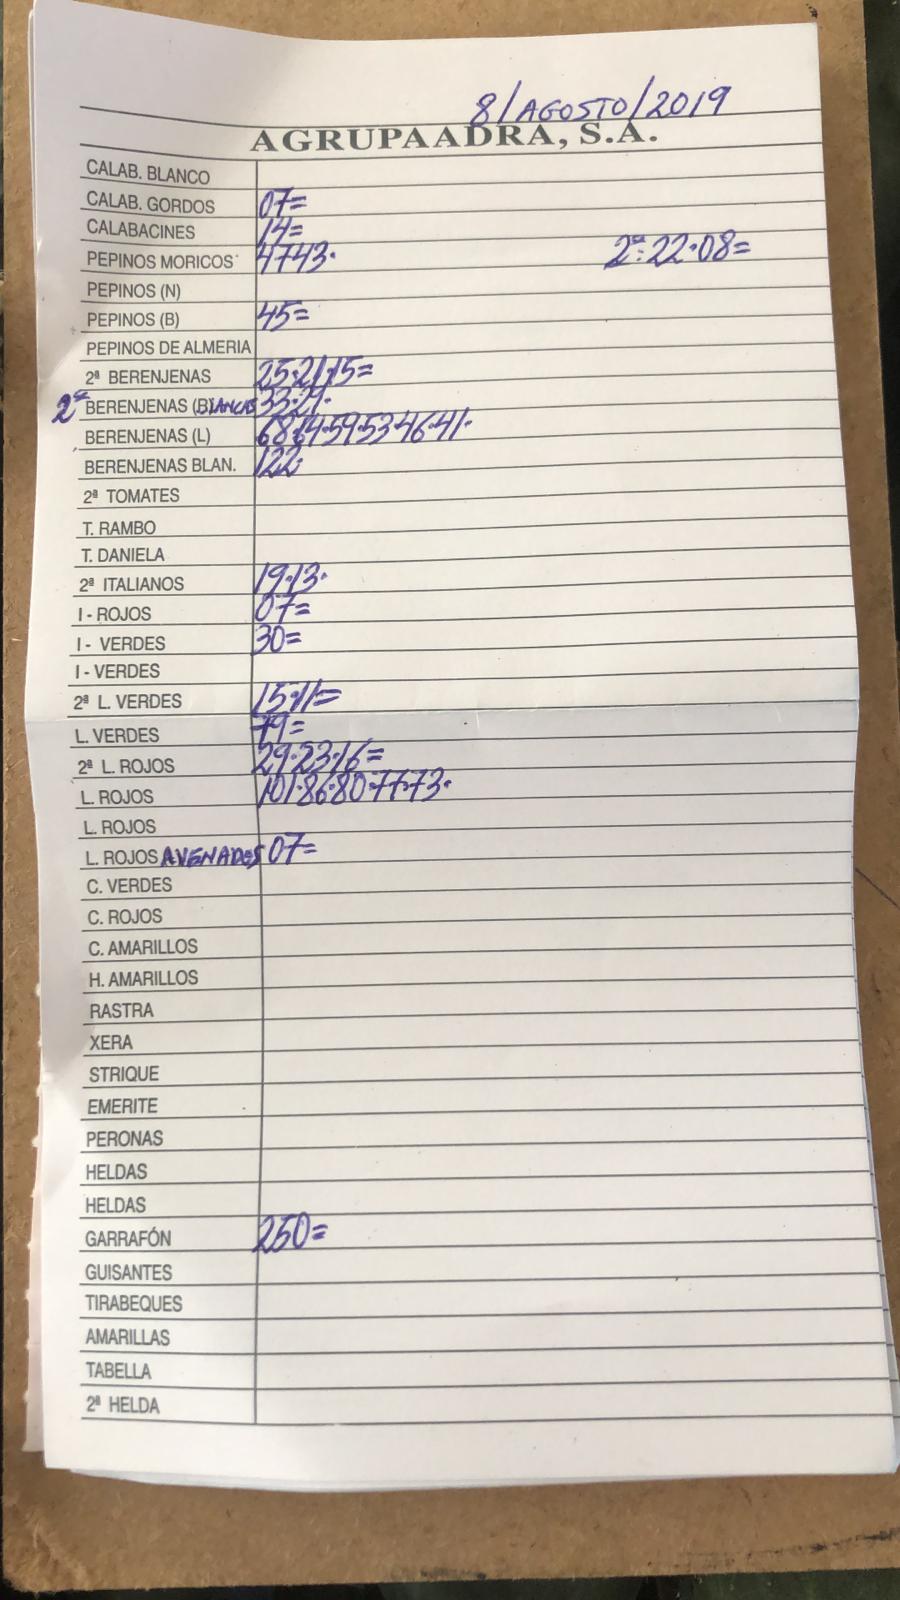 8/AGOSTO/2019
AGRUPAADRA, S.A.
CALAB. BLANCO
CALAB. GORDOS 07=
CALABACINES 14=
PEPINOS MORICOS 47·43· 2ª: 22·08=
PEPINOS (N)
PEPINOS (B) 45=
PEPINOS DE ALMERIA
2ª BERENJENAS 25·21·15=
2ª BERENJENAS (BLANCAS 33·29·
BERENJENAS (L) 68·64·59·53·46·41·
BERENJENAS BLAN. 122·
2ª TOMATES
T. RAMBO
T. DANIELA
2ª ITALIANOS 19·13·
I - ROJOS 07=
I - VERDES 30=
I - VERDES
2ª L. VERDES 15·11=
L. VERDES 79=
2ª L. ROJOS 29·23·16=
L. ROJOS 101·86·80·77·73·
L. ROJOS
L. ROJOS AVENADOS 07=
C. VERDES
C. ROJOS
C. AMARILLOS
H. AMARILLOS
RASTRA
XERA
STRIQUE
EMERITE
PERONAS
HELDAS
HELDAS
GARRAFÓN 250=
GUISANTES
TIRABEQUES
AMARILLAS
TABELLA
2ª HELDA